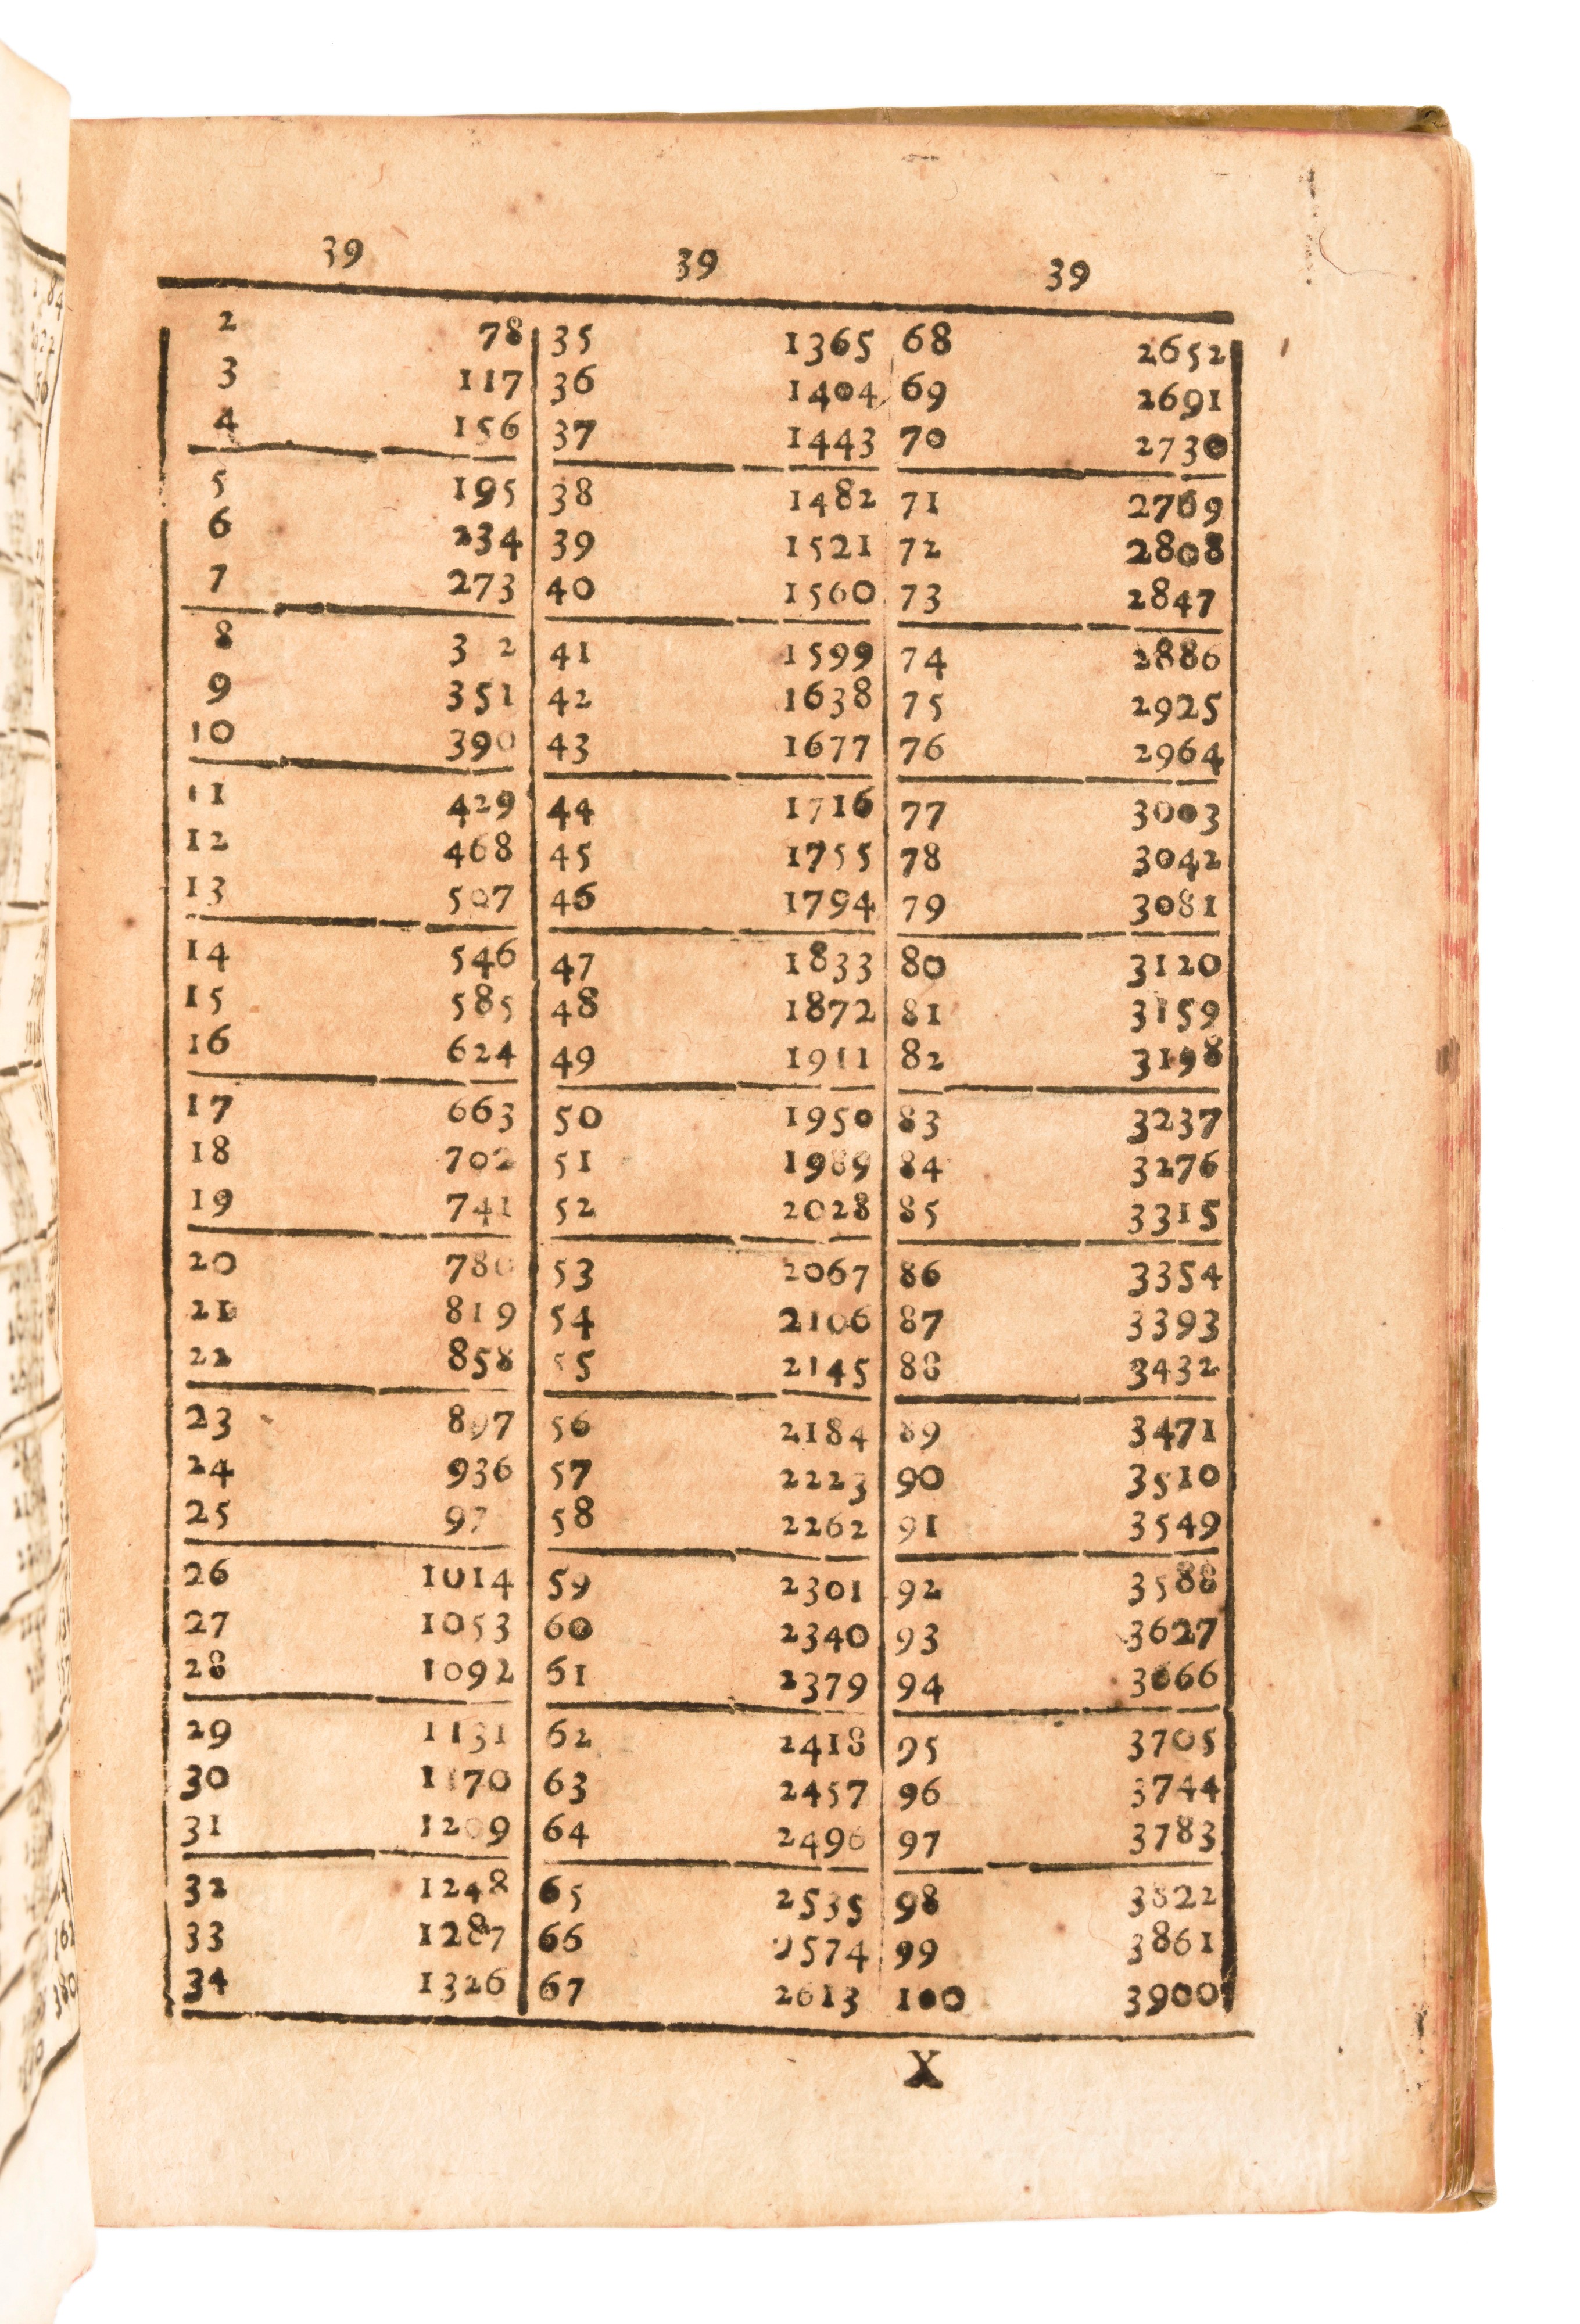 39 39 39
2 78 35 1365 68 2652
3 117 36 1404 69 2691
4 156 37 1443 70 2730
5 195 38 1482 71 2769
6 234 39 1521 72 2808
7 273 40 1560 73 2847
8 3 2 41 1599 74 2886
9 351 42 1638 75 2925
10 390 43 1677 76 2964
11 429 44 1716 77 3003
12 468 45 1755 78 3042
13 507 46 1794 79 3081
14 546 47 1833 80 3120
15 585 48 1872 81 3159
16 624 49 1911 82 3198
17 663 50 1950 83 3237
18 702 51 1989 84 3276
19 741 52 2028 85 3315
20 780 53 2067 86 3354
21 819 54 2106 87 3393
22 858 55 2145 88 3432
23 897 56 2184 89 3471
24 936 57 2223 90 3510
25 97 58 2262 91 3549
26 1014 59 2301 92 3588
27 1053 60 2340 93 3627
28 1092 61 2379 94 3666
29 1131 62 2418 95 3705
30 1170 63 2457 96 3744
31 1209 64 2496 97 3783
32 1248 65 2535 98 3822
33 1287 66 2574 99 3861
34 1326 67 2613 100 3900
X